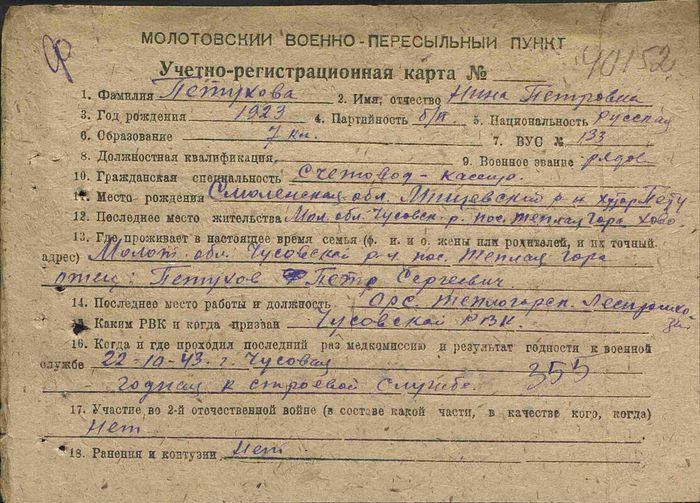 МОЛОТОВСКИЙ ВОЕННО-ПЕРЕСЫЛЬНЫЙ ПУНКТ
Учетно-регистрационная карта № 40152
1. Фамилия Петухова 2. Имя, отчество Нина Петровна
3. Год рождения 1923 4. Партийность б/п 5. Национальность Русская
6. Образование 7 кл. 7. ВУС № 133
8. Должностная квалификация 9. Военное звание рядов
10. Гражданская специальность Счетовод-кассир.
11. Место рождения Смоленская обл. р-н хутор Пету
12. Последнее место жительства Мол. обл. Чусовск. р. пос. Теплая гора
13. Где проживает в настоящее время семья (ф. и. и о. жены или родителей, и их точный
адрес) Молот. обл. Чусовской р-н пос. Теплая гора
отец: Петухов Петр Сергеевич
14. Последнее место работы и должность Орс Теплогорск. Леспромхо-
за
15. Каким РВК и когда призван Чусовской РВК.
16. Когда и где проходил последний раз медкомиссию и результат годности к военной
службе 22-10-43 г. Чусовая
годная к строевой службе. 355
17. Участие во 2-й отечественной войне (в составе какой части, в качестве кого, когда)
Нет
18. Ранения и контузии Нет